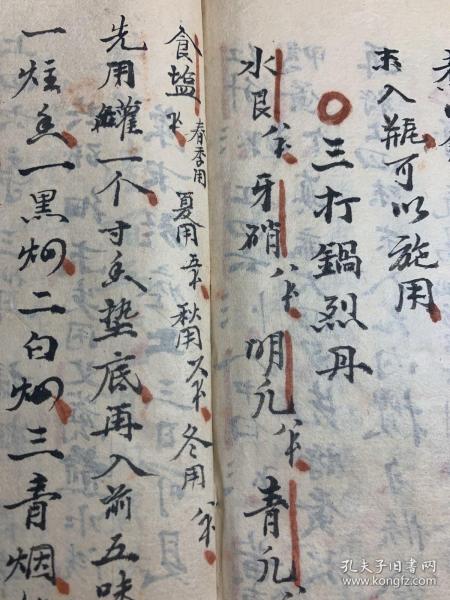 末入瓶可以施用
〇三打鍋烈丹
水艮八钱牙硝八钱明凡八钱青凡八
食塩 春季用 夏用五钱 秋用六钱 冬用八钱
先用罐一个寸香垫底再入前五味
一炷香一黑烟二白烟三青烟
孔夫子旧书网
www.kongfz.com